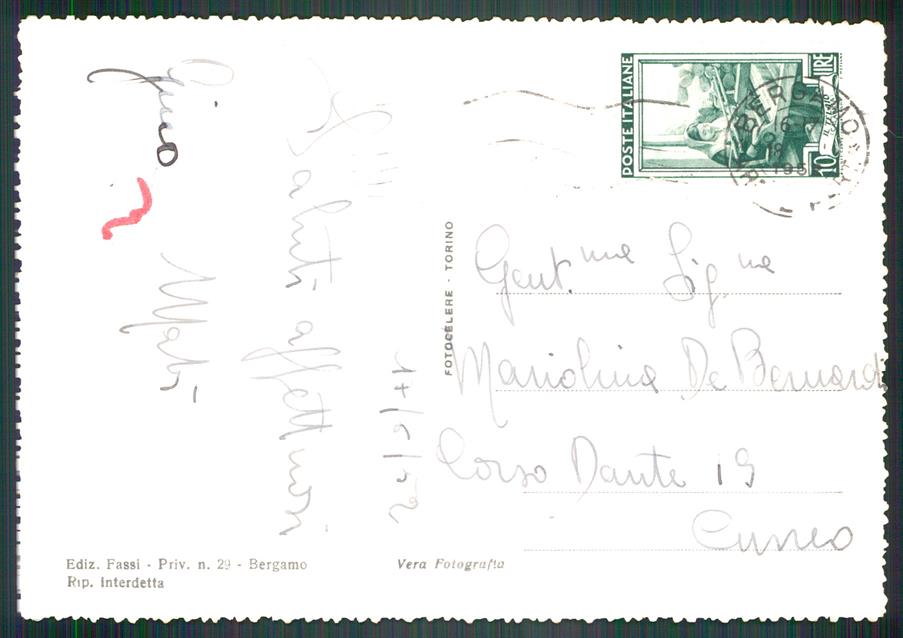 Saluti affettuosi
Gino
Mati
17/6/52
FOTOCELERE - TORINO
POSTE ITALIANE
LIRE
10
BERGAMO
Gent.ma Sig.na
Mariolina De Bernardi
Corso Dante 19
Cuneo
Ediz. Fassi - Priv. n. 29 - Bergamo
Rip. Interdetta
Vera Fotografia